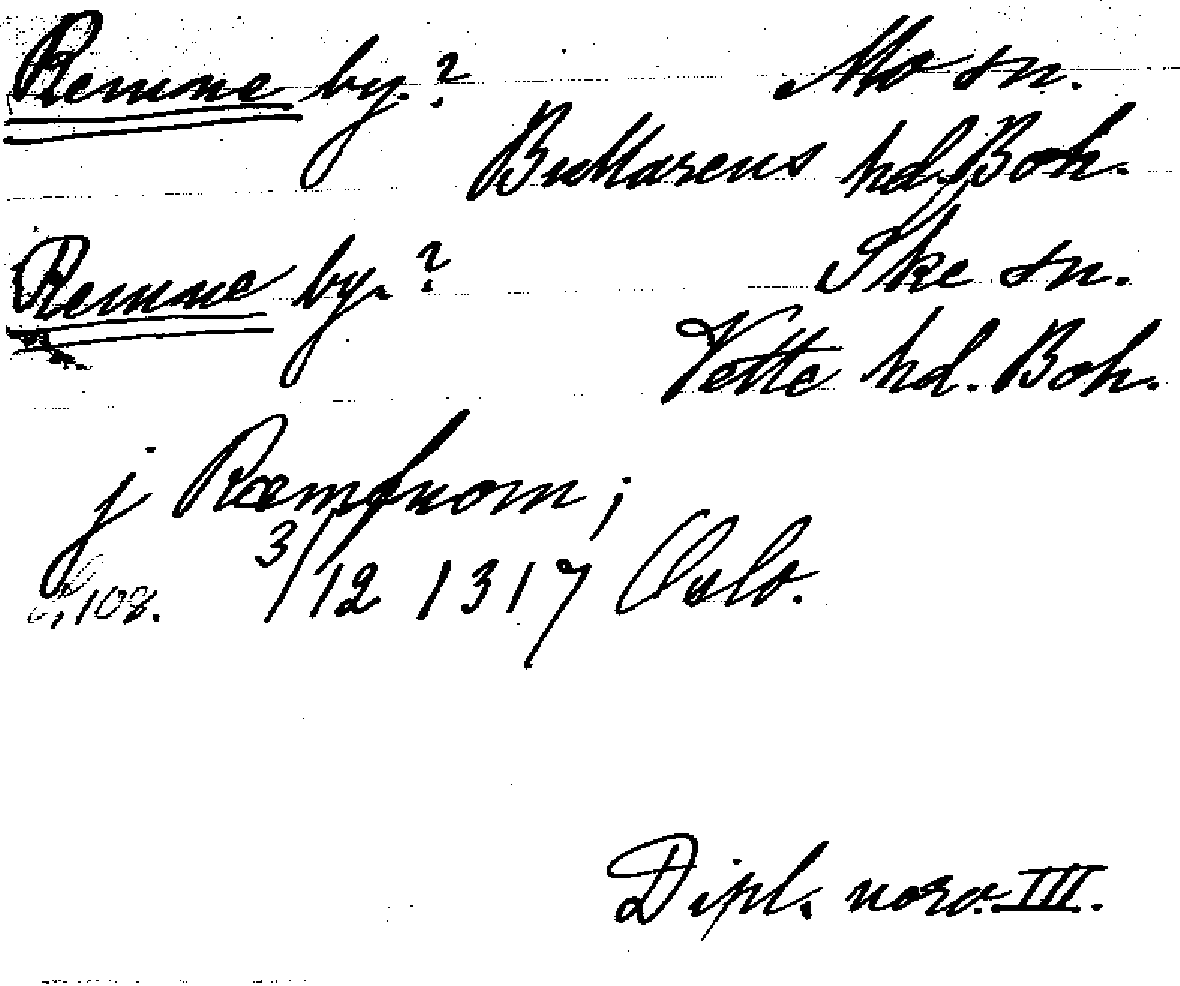 Remne by.? Mo sn.
Bullarens hd. Boh.
Remne by.? Ske sn.
Vette hd. Boh.
j Ræmfuom;
s. 108. 3/12 1317 Oslo.
Dipl. norv. III.